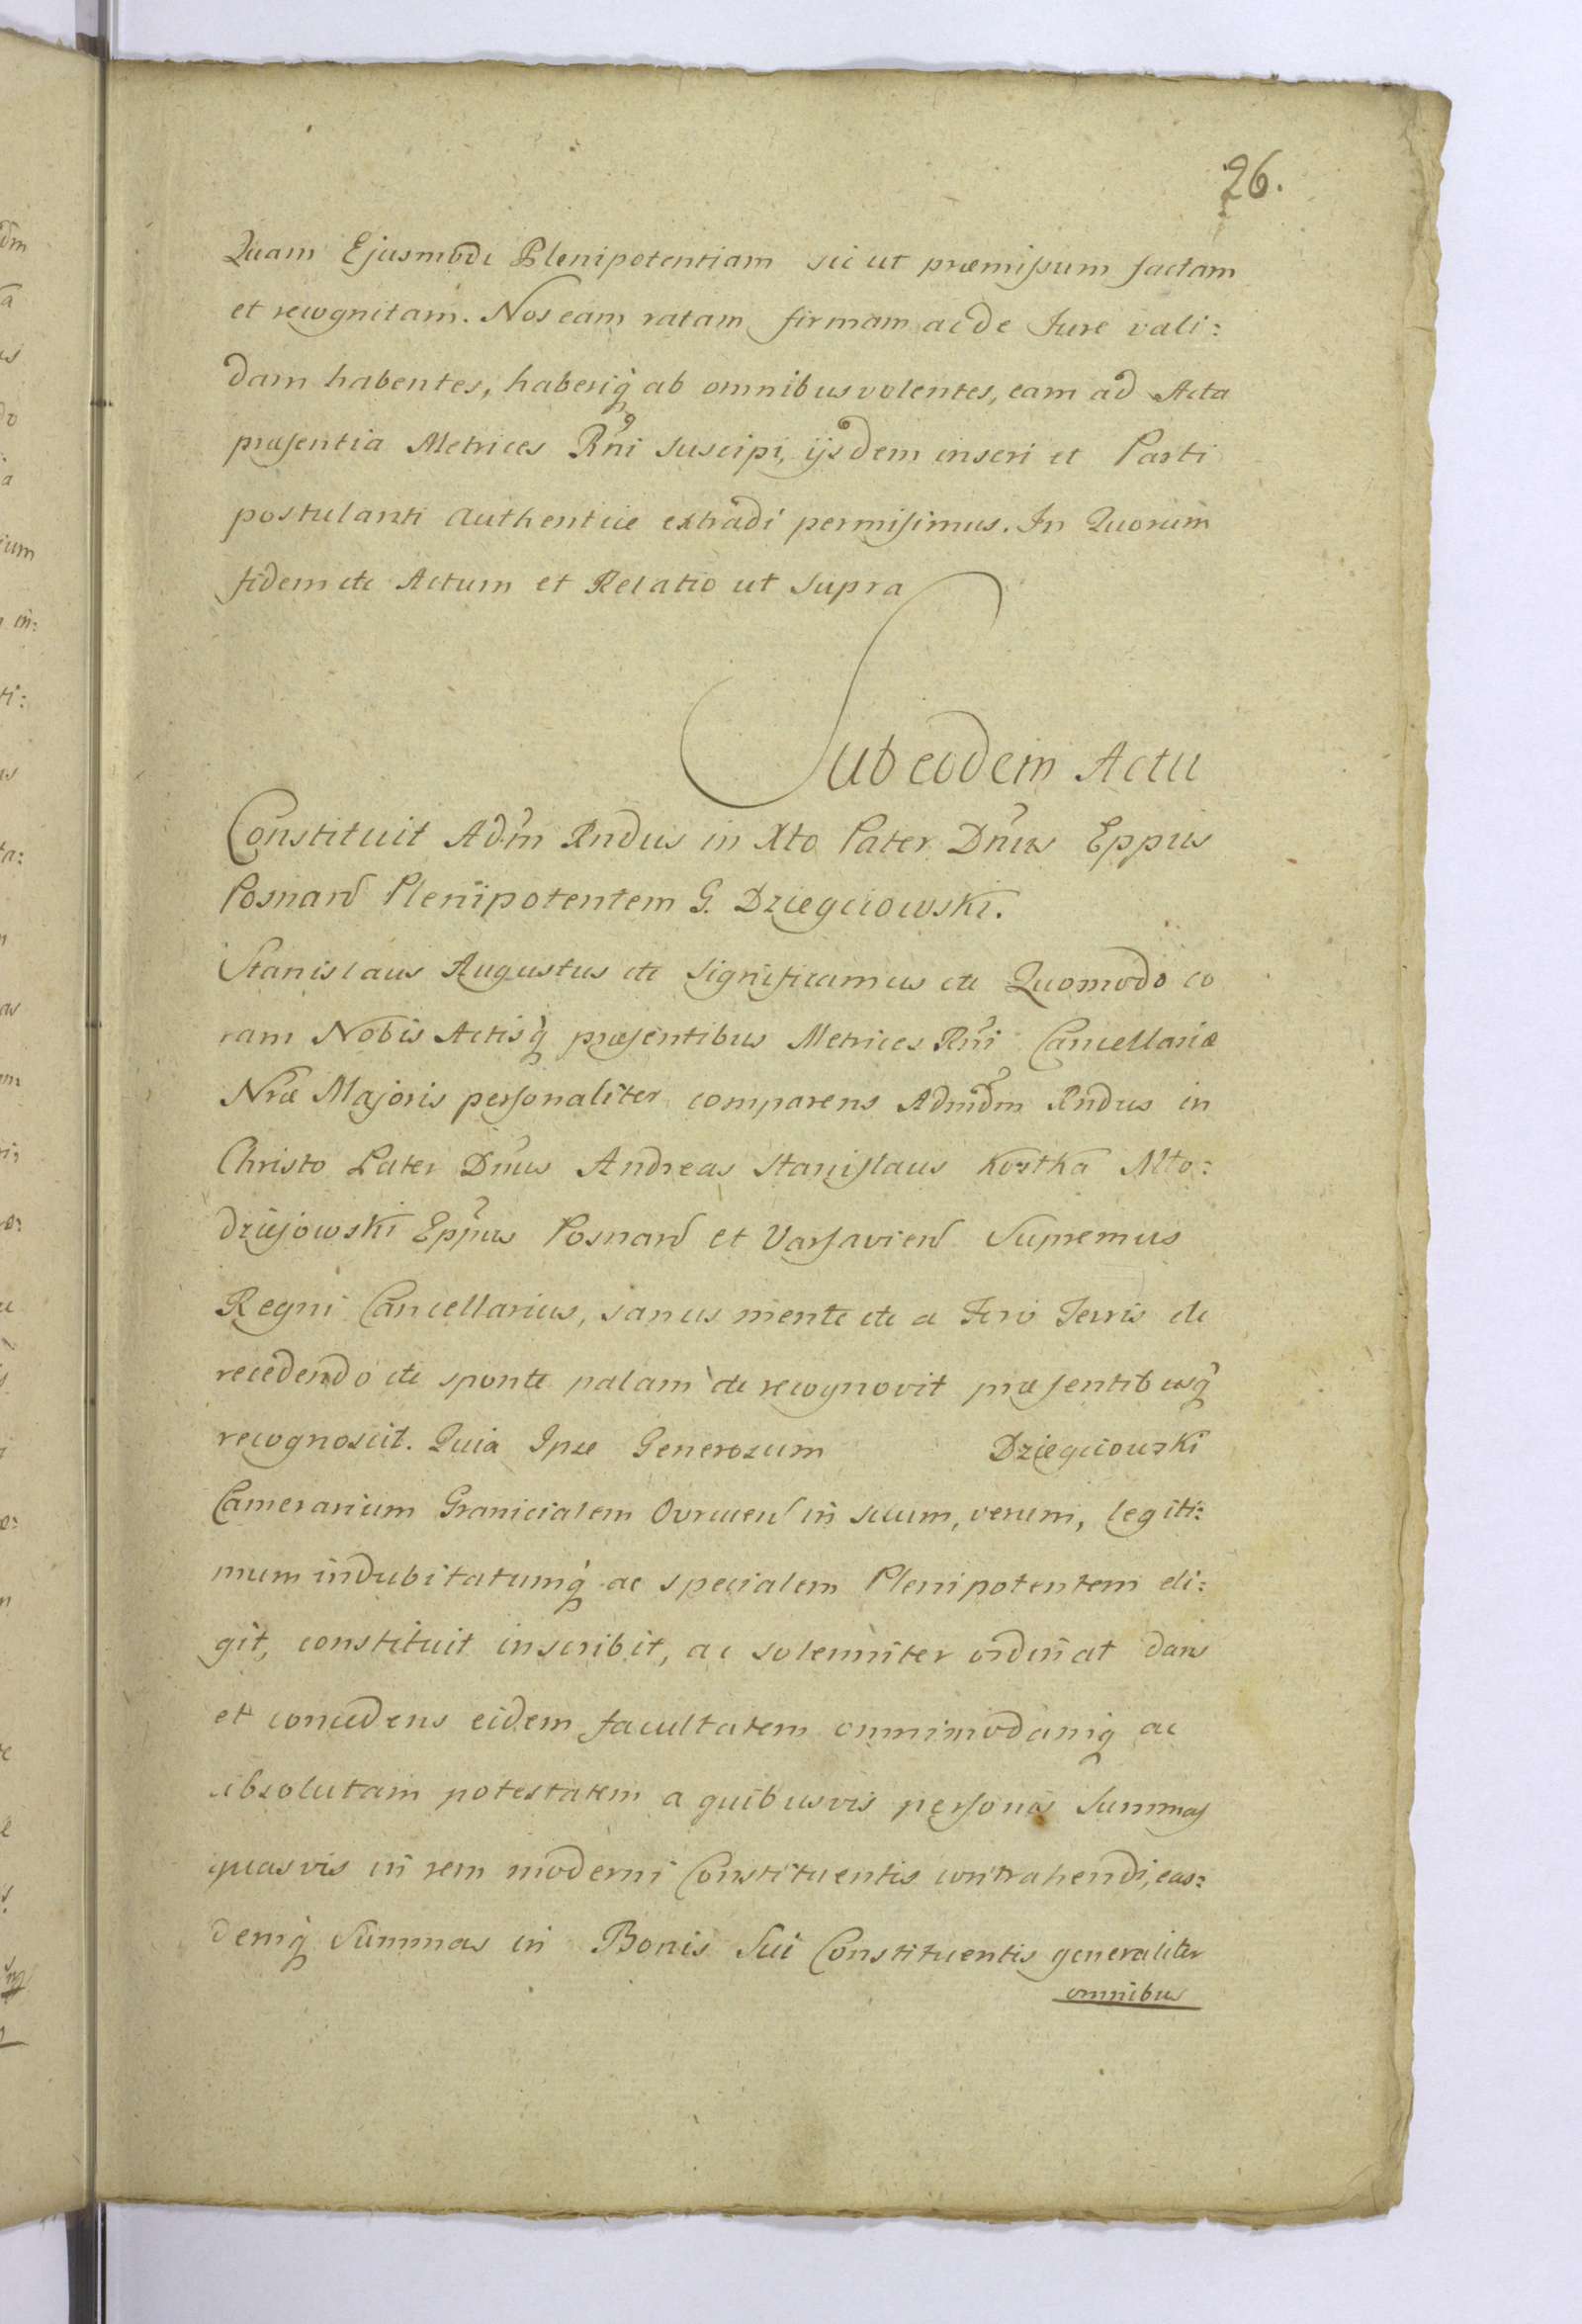 26.
Quam Ejusmodi Plenipotentiam sic ut præmissum factam
et recognitam. Nos eam ratam firmam ac de Jure vali:
dam habentes, haberiq̃ ab omnibus volentes, eam ad Acta
præsentia Metrices Rñi suscipi, ijsdem inseri et Parti
postulanti authentice extradi permisimus. In Quorum
fidem etc Actum et Relatio ut supra
Sub eodem Actu
Constituit Adm̃ Rndus in Xto Pater Dñus Eppus
Posnan Plenipotentem G. Dziegciowski.
Stanislaus Augustus etc significamus etc Quomodo co
ram Nobis Actisq̃ præsentibus Metrices Rñi Cancellariæ
Nræ Majoris personaliter comparens Admdm̃ Rñdus in
Christo Pater Dñus Andreas Stanislaus Kostka Mło:
dziejowski Epp̃us Posnan et Varsavien Supremus
Regni Cancellarius, sanus mente etc a Foro Terris etc
recedendo etc sponte palam etc recognovit præsentibusq̃
recognoscit. Quia Ipse Generosum Dziegciowski
Camerarium Granicialem Ovrucen in suum, verum, legiti:
mum indubitatumq̃ ac specialem Plenipotentem eli:
git, constituit inscribit, ac solemniter ordinat dans
et concedens eidem facultatem omnimodamq̃ ac
absolutam potestatem a quibusvis personis Summas
quasvis in rem moderni Constituentis contrahendi, eas:
demq̃ Summas in Bonis Sui Constituentis generaliter
omnibus